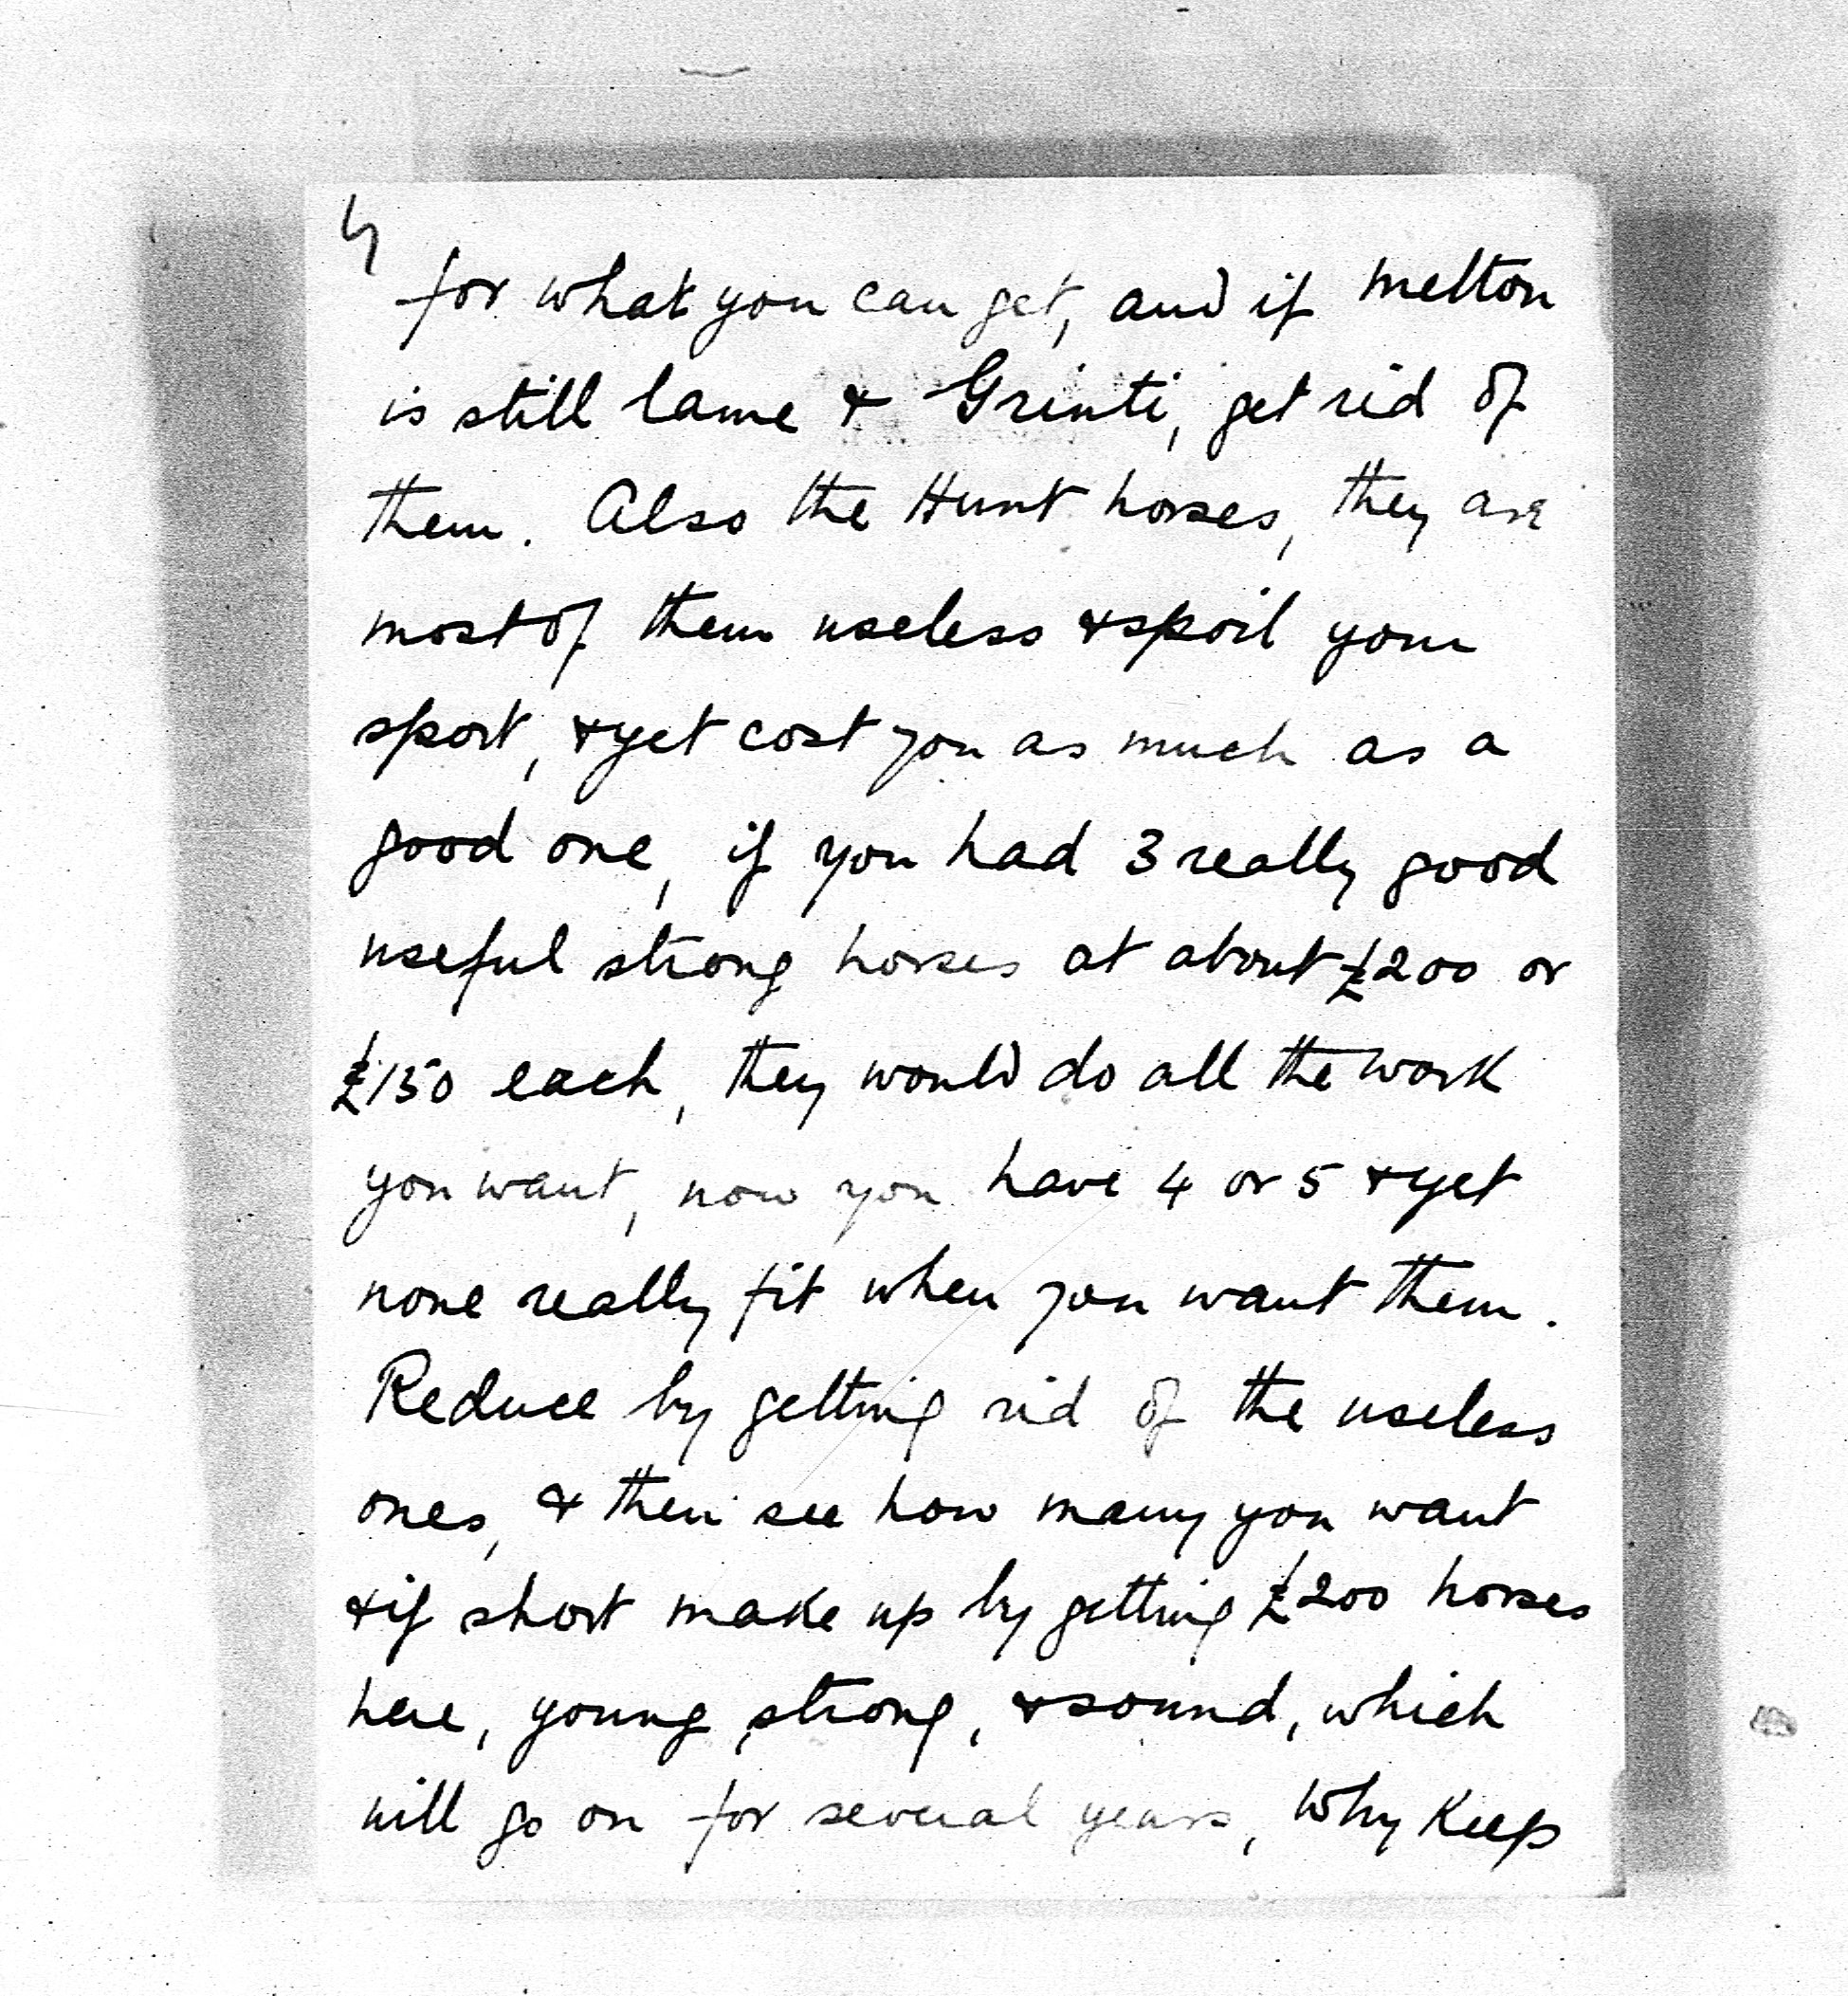 4
for what you can get, and if Melton
is still lame & Grinti, get rid of
them. Also the Hunt horses, they are
most of them useless & spoil your
sport, & yet cost you as much as a
good one, if you had 3 really good
useful strong horses at about £200 or
£150 each, they would do all the work
you want, now you have 4 or 5 & yet
none really fit when you want them.
Reduce by getting rid of the useless
ones, & then see how many you want
& if short make up by getting £200 horses
here, young, strong, & sound, which
will go on for several years, Why keep